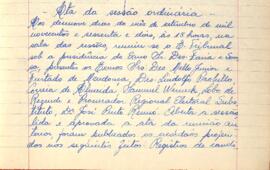 Ata da sessão ordinária
Aos dezenove dias do mês de setembro de mil
novecentos e sessenta e dois, às 13 horas, na
sala das sessões, reuniu-se o E. Tribunal
sob a presidência do Exmo Sr. Des.
presentes os Exmos Srs. Des. Mello Junior e
Furtado de Mendonça, Drs. Lindolfo
Correia de Almeida, Samuel Wainer, Lobo de
Rezende e Procurador Regional Eleitoral Subs
tituto, Dr. José Pinto Renno. Aberta a sessão
lida e aprovada a ata da reunião an
terior, foram publicados os acórdãos proferi
dos nos seguintes feitos: Registros de candi